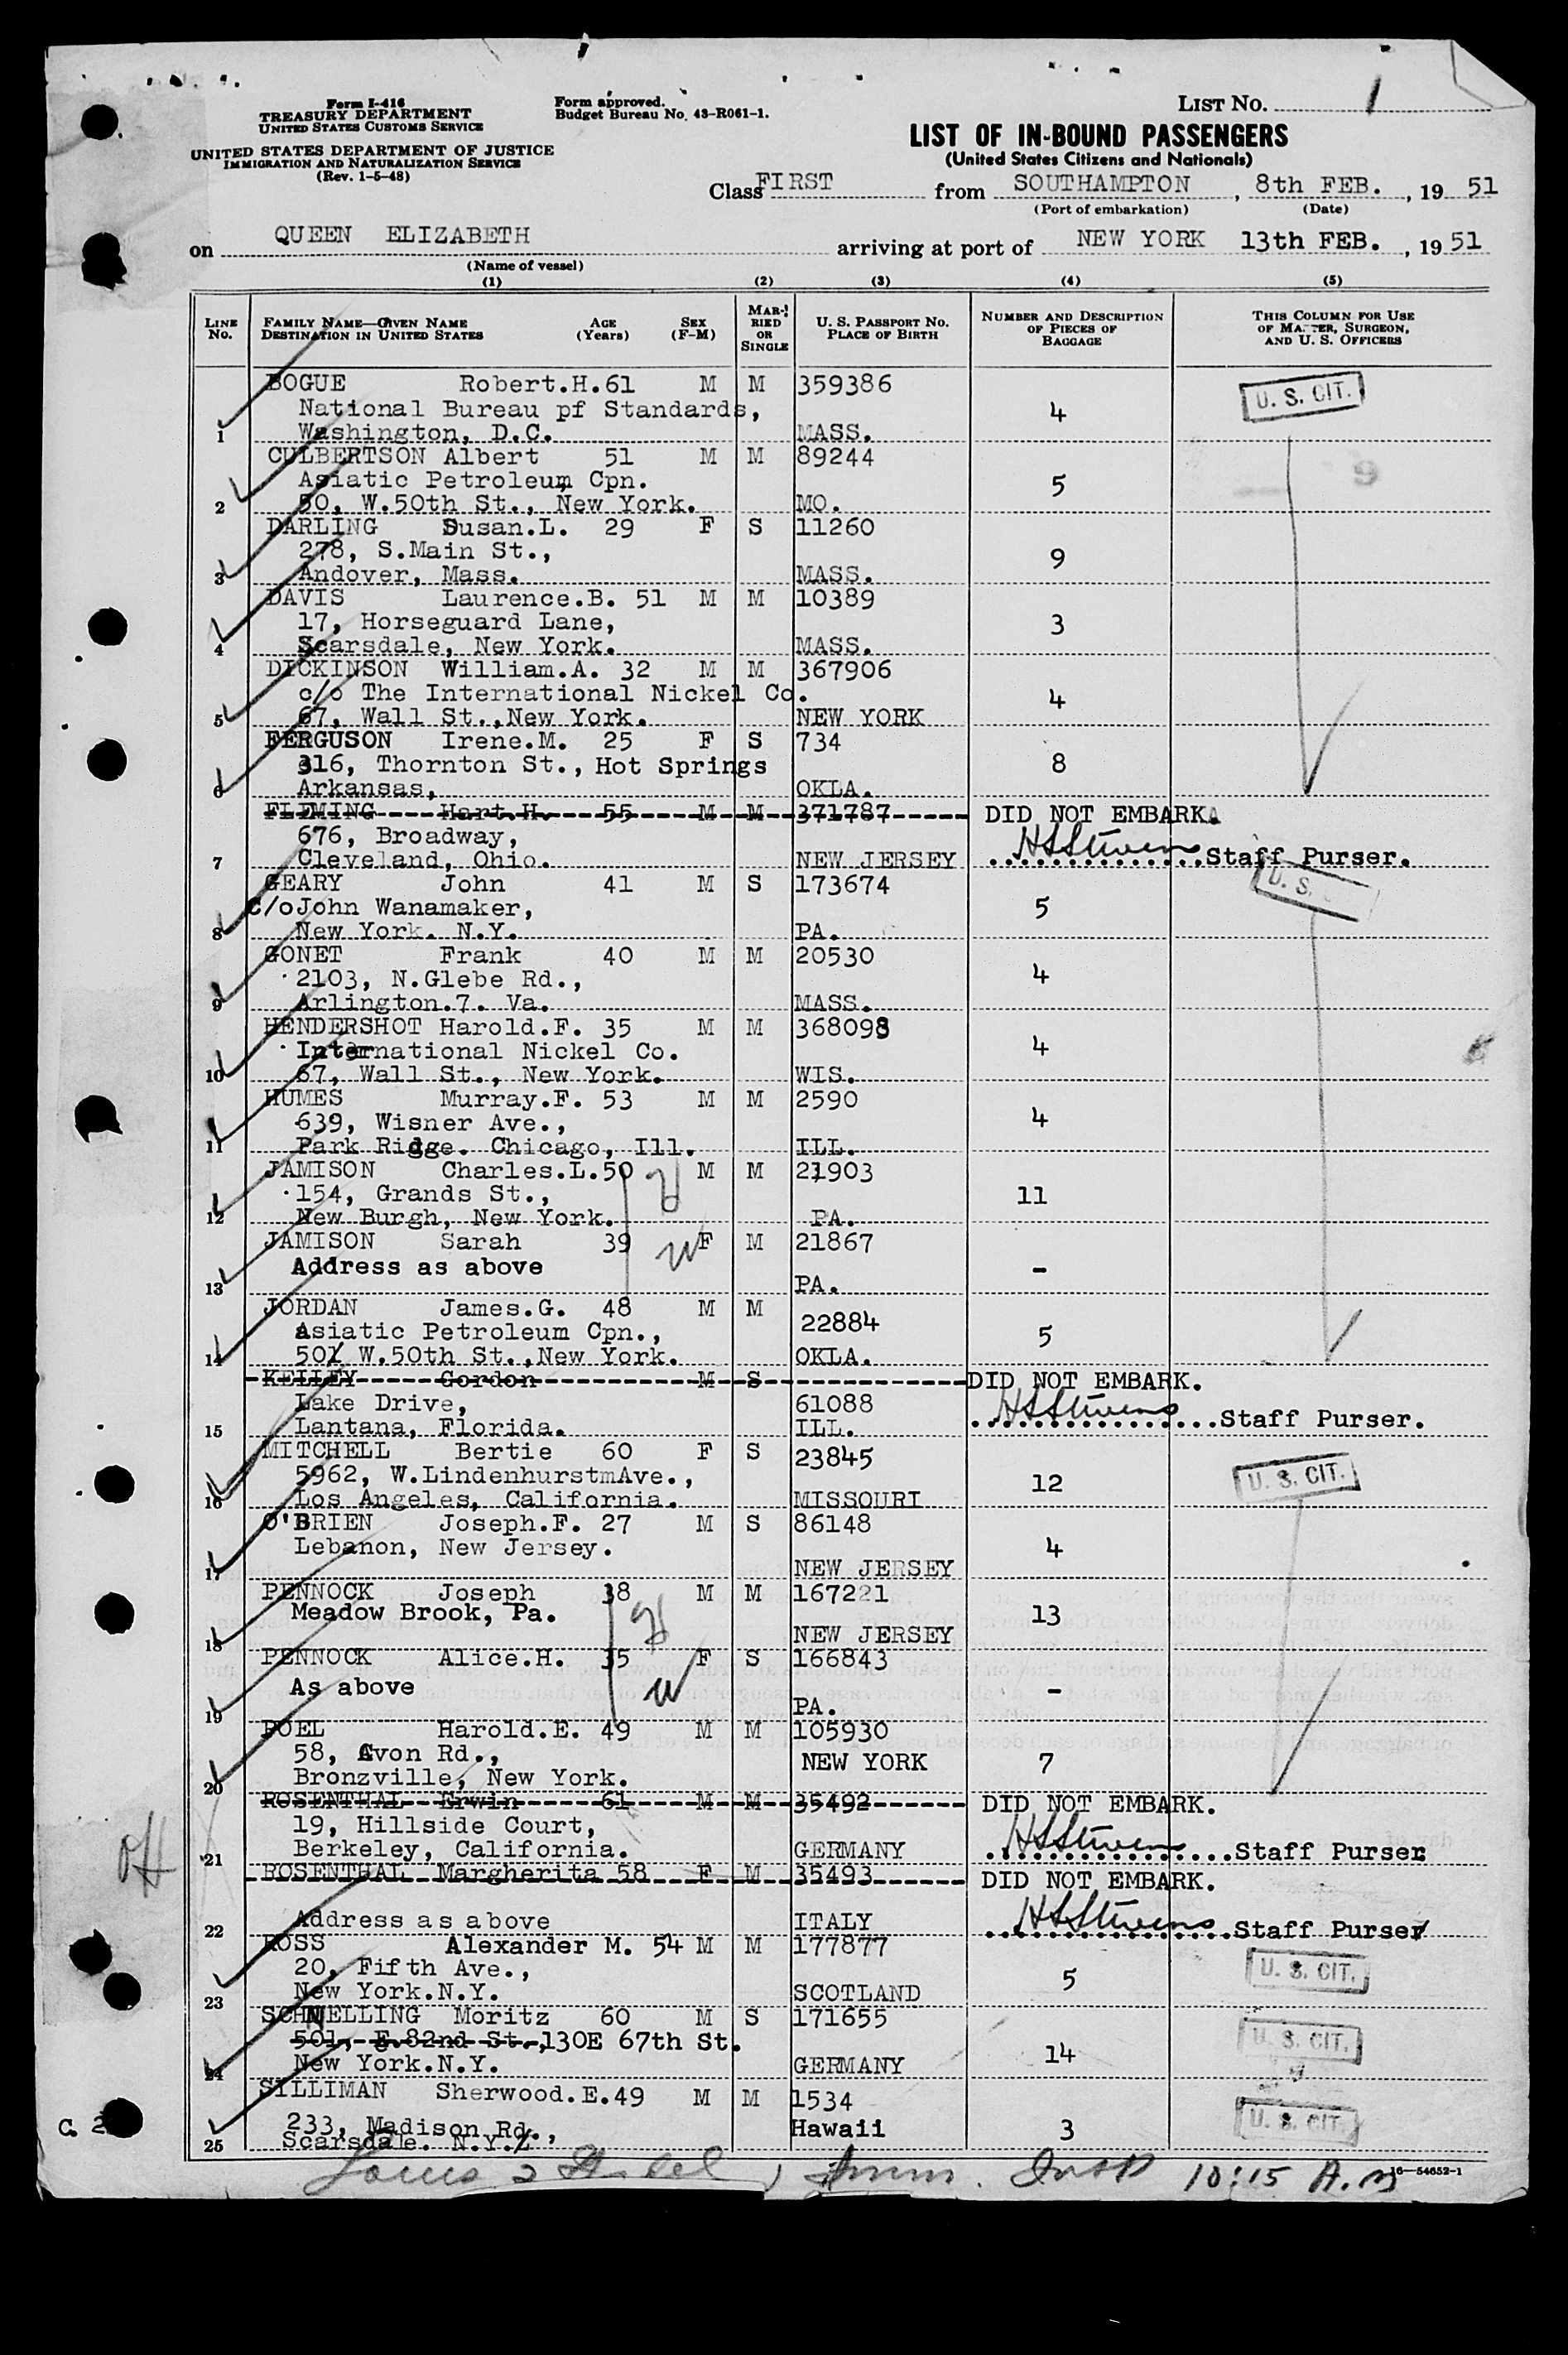 Form I-416
TREASURY DEPARTMENT
UNITED STATES CUSTOMS SERVICE
UNITED STATES DEPARTMENT OF JUSTICE
IMMIGRATION AND NATURALIZATION SERVICE
(Rev. 1-5-48)
Form approved.
Budget Bureau No. 43-R061-1.
LIST NO. 1
LIST OF IN-BOUND PASSENGERS
(United States Citizens and Nationals)
Class FIRST from SOUTHAMPTON, 8th FEB., 19 51
(Port of embarkation) (Date)
on QUEEN ELIZABETH arriving at port of NEW YORK 13th FEB., 19 51
(Name of vessel)
(1) (2) (3) (4) (5)
LINE NO. FAMILY NAME—GIVEN NAME DESTINATION IN UNITED STATES AGE (Years) SEX (F-M) MARRIED OR SINGLE U. S. PASSPORT NO. PLACE OF BIRTH NUMBER AND DESCRIPTION OF PIECES OF BAGGAGE THIS COLUMN FOR USE OF MASTER, SURGEON, AND U. S. OFFICERS
BOGUE Robert.H. 61 M M 359386 U. S. CIT.
National Bureau pf Standards, 4
1 Washington, D.C. MASS.
CULBERTSON Albert 51 M M 89244
Asiatic Petroleum Cpn. 5
2 50, W.50th St., New York. MO.
DARLING Susan.L. 29 F S 11260
278, S.Main St., 9
3 Andover, Mass. MASS.
DAVIS Laurence.B. 51 M M 10389
17, Horseguard Lane, 3
4 Scarsdale, New York. MASS.
DICKINSON William.A. 32 M M 367906
c/o The International Nickel Co. 4
5 67, Wall St., New York. NEW YORK
FERGUSON Irene.M. 25 F S 734
316, Thornton St., Hot Springs 8
6 Arkansas, OKLA.
FLEMING Hart.H. 55 M M 371787 DID NOT EMBARK.
676, Broadway,
7 Cleveland, Ohio. NEW JERSEY HSStevens Staff Purser.
GEARY John 41 M S 173674 U. S.
C/o John Wanamaker, 5
8 New York. N.Y. PA.
GONET Frank 40 M M 20530
2103, N.Glebe Rd., 4
9 Arlington.7. Va. MASS.
HENDERSHOT Harold.F. 35 M M 368098
International Nickel Co. 4
10 67, Wall St., New York. WIS.
HUMES Murray.F. 53 M M 2590
639, Wisner Ave., 4
11 Park Ridge. Chicago, Ill. ILL.
JAMISON Charles.L. 50 H M M 21903
154, Grands St., 11
12 New Burgh, New York. PA.
JAMISON Sarah 39 W F M 21867
Address as above -
13 PA.
JORDAN James.G. 48 M M 22884
Asiatic Petroleum Cpn., 5
14 50 W.50th St., New York. OKLA.
KELLEY Gordon M S DID NOT EMBARK.
Lake Drive, 61088
15 Lantana, Florida. ILL. HSStevens Staff Purser.
MITCHELL Bertie 60 F S 23845 U. S. CIT.
5962, W.LindenhurstmAve., 12
16 Los Angeles, California. MISSOURI
O'BRIEN Joseph.F. 27 M S 86148
Lebanon, New Jersey. 4
17 NEW JERSEY
PENNOCK Joseph 38 H M M 167221
Meadow Brook, Pa. 13
18 NEW JERSEY
PENNOCK Alice.H. 35 W F S 166843
As above -
19 PA.
POEL Harold.E. 49 M M 105930
58, Avon Rd., NEW YORK 7
20 Bronzville, New York.
ROSENTHAL Erwin 61 M M 35492 DID NOT EMBARK.
19, Hillside Court,
21 Berkeley, California. GERMANY HSStevens Staff Purser.
ROSENTHAL Margherita 58 F M 35493 DID NOT EMBARK.
22 Address as above ITALY HSStevens Staff Purser
ROSS Alexander M. 54 M M 177877
20, Fifth Ave., 5 U. S. CIT.
23 New York.N.Y. SCOTLAND
SCHNELLING Moritz 60 M S 171655
501, E.82nd St., 130E 67th St. 14 U. S. CIT.
24 New York.N.Y. GERMANY
SILLIMAN Sherwood.E. 49 M M 1534
233, Madison Rd., Hawaii 3 U. S. CIT.
25 Scarsdale. N.Y.
Immn. Insp 10:15 A.M
16—54652-1